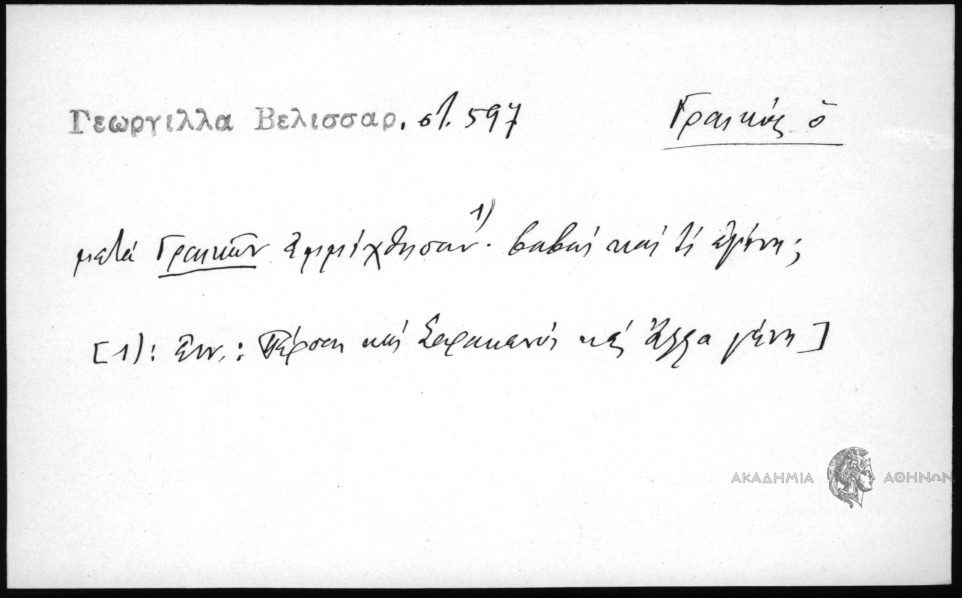 Γεωργιλλα Βελισσαρ. στ. 597 Γραικός ὁ
μετά Γραικῶν ἐμμίχθησαν¹⁾· βαβαί καί τί ἐγένη;
[1): ἐνν.: Πέρσαι καί Σαρακηνοί καί ἄλλα γένη]
ΑΚΑΔΗΜΙΑ ΑΘΗΝΩΝ